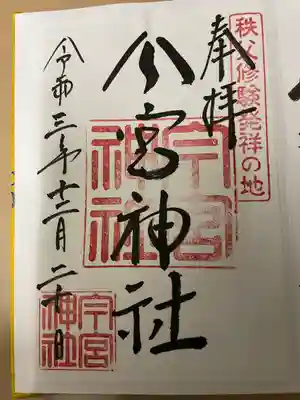 秩父修験発祥の地
奉拝
今宮神社
今宮神社
令和三年十二月
今宮神社